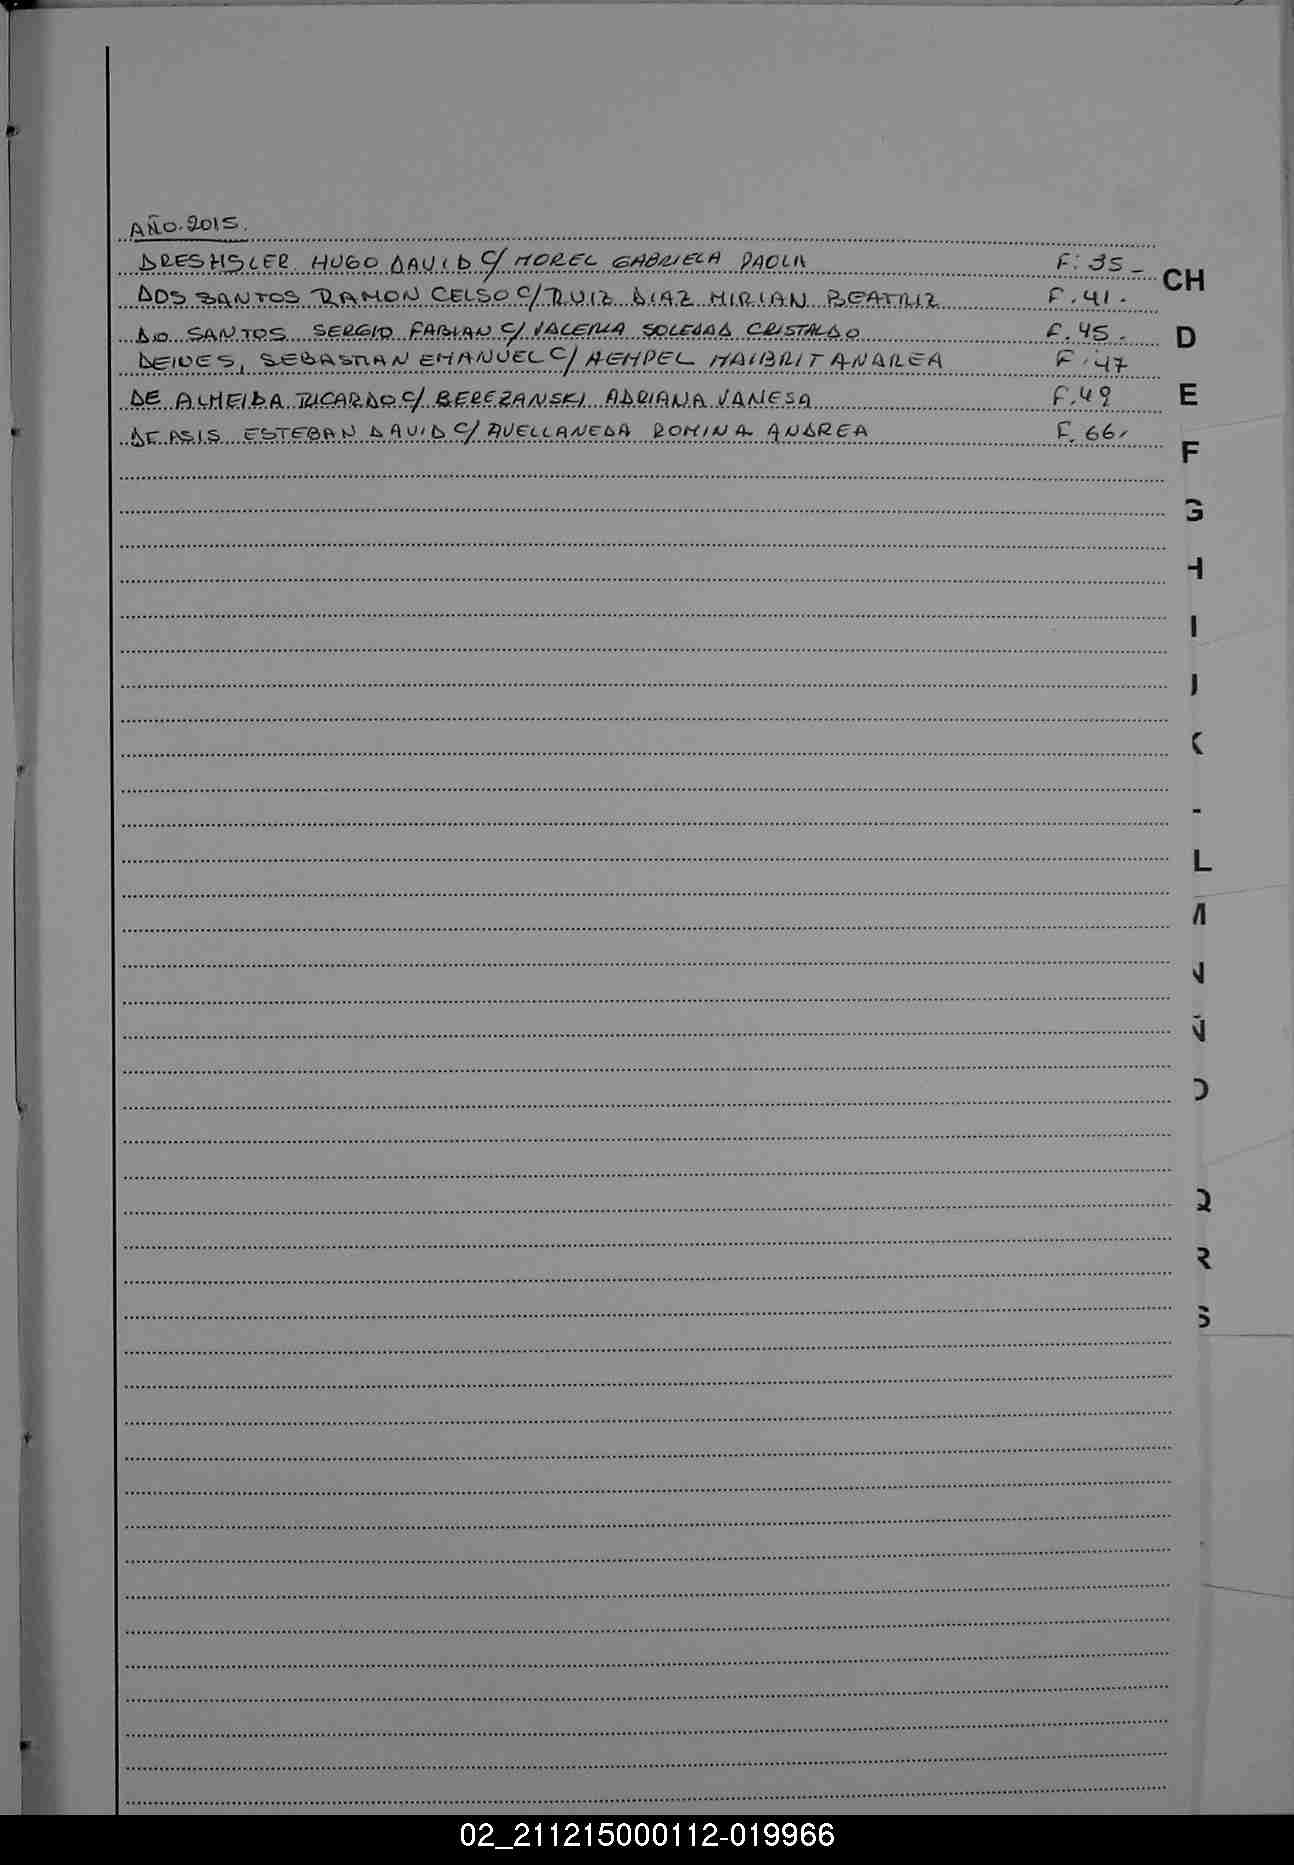 AÑO.2015.
DRESHSLER HUGO DAVID C/ MOREL GABRIELA PAOLA F: 35 -
CH
DOS SANTOS RAMON CELSO C/ RUIZ DIAZ MIRIAN BEATRIZ F. 41.
DO SANTOS SERGIO FABIAN C/ VALERIA SOLEDAD CRISTALDO F. 45.
D
DEIVES, SEBASTIAN EMANUEL C/ HEMPEL MAIBRIT ANDREA F. 47
DE ALMEIDA RICARDO C/ BEREZANSKI ADRIANA VANESA F. 49
E
DE ASIS ESTEBAN DAVID C/ AVELLANEDA ROMINA ANDREA F. 66.
F
G
H
I
J
K
L
M
N
Ñ
O
Q
R
S
02_211215000112-019966